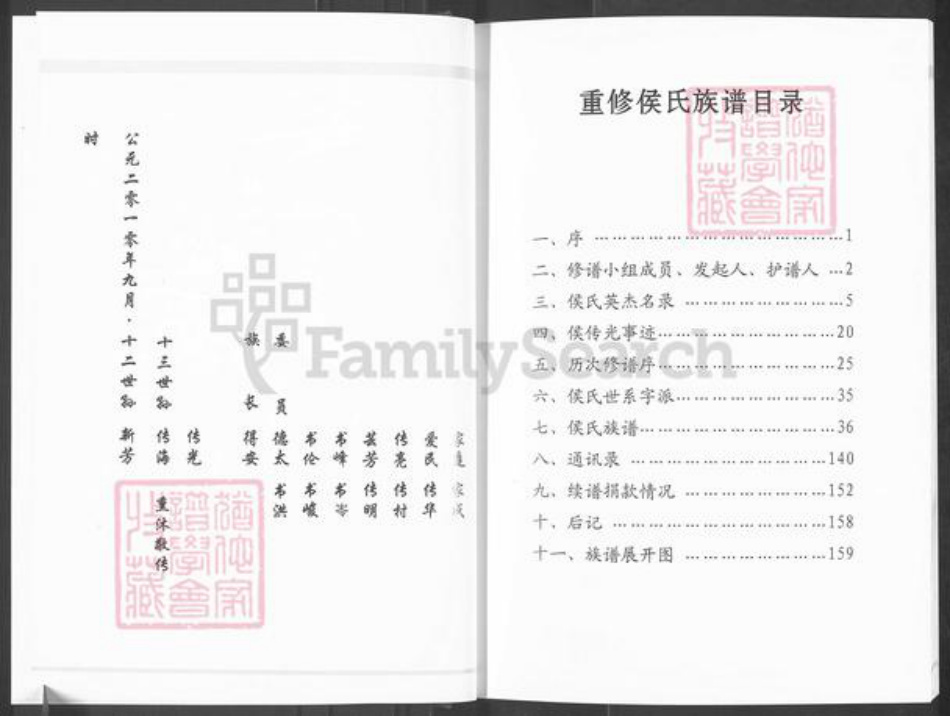 家 家
爱民 传华
传亮 传村
芸芳 传明
书峰 书岑
书伦 书峻
委员 德太 书洪
族长 得安
传光
十三世孙 传海 重沐敬传
公元二零一零年九月·十二世孙 新芳
时
重修侯氏族谱目录
一、序 ………………………………1
二、修谱小组成员、发起人、护谱人 …2
三、侯氏英杰名录 ……………………5
四、侯传光事迹………………………20
五、历次修谱序………………………25
六、侯氏世系字派……………………35
七、侯氏族谱…………………………36
八、通讯录 …………………………140
九、续谱捐款情况 …………………152
十、后记 ……………………………158
十一、族谱展开图 …………………159
FamilySearch